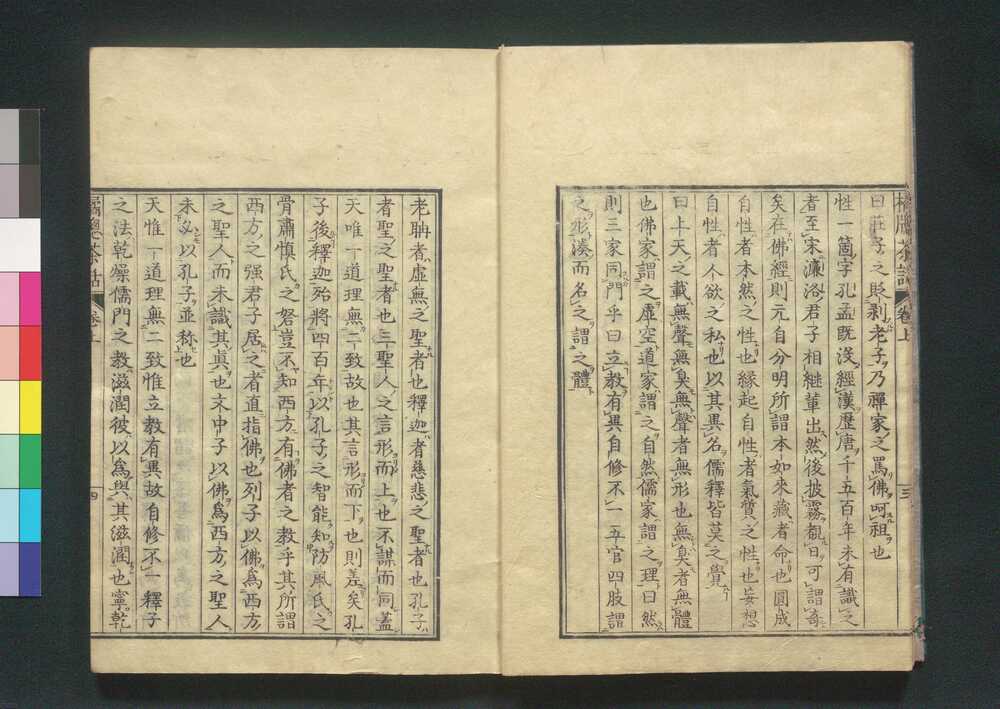 曰莊子之貶剥老子乃禪家之罵佛呵祖也
性一箇字孔孟既沒經漢歷唐千五百年未有識之
者至宋濂洛君子相繼輩出然後披霧覩日可謂奇
矣在佛經則元自分明所謂本如來藏者命也圓成
自性者本然之性也縁起自性者氣質之性也妄想
自性者人欲之私也以其異名儒釋皆莫之覺
曰上天之載無聲無臭無聲者無形也無臭者無體
也佛家謂之虛空道家謂之自然儒家謂之理曰然
則三家同門乎曰立教有異自修不一五官四肢謂
之形湊而名之謂之體
卷上
三
老聃者虛無之聖者也釋迦者慈悲之聖者也孔子
者聖之聖者也三聖人之言形而上也不謀而同蓋
天唯一道理無二致故也其言形而下也則差矣孔
子後釋迦殆將四百年以孔子之智能知防風氏之
骨肅慎氏之砮豈不知西方有佛者之教乎其所謂
西方之强君子居之者直指佛也列子以佛爲西方
之聖人而未識其眞也文中子以佛爲西方之聖人
未必以孔子並称也
天惟一道理無二致惟立教有異故自修不一釋子
之法乾燥儒門之教滋潤彼以爲與其滋潤也寧乾
茶話
四